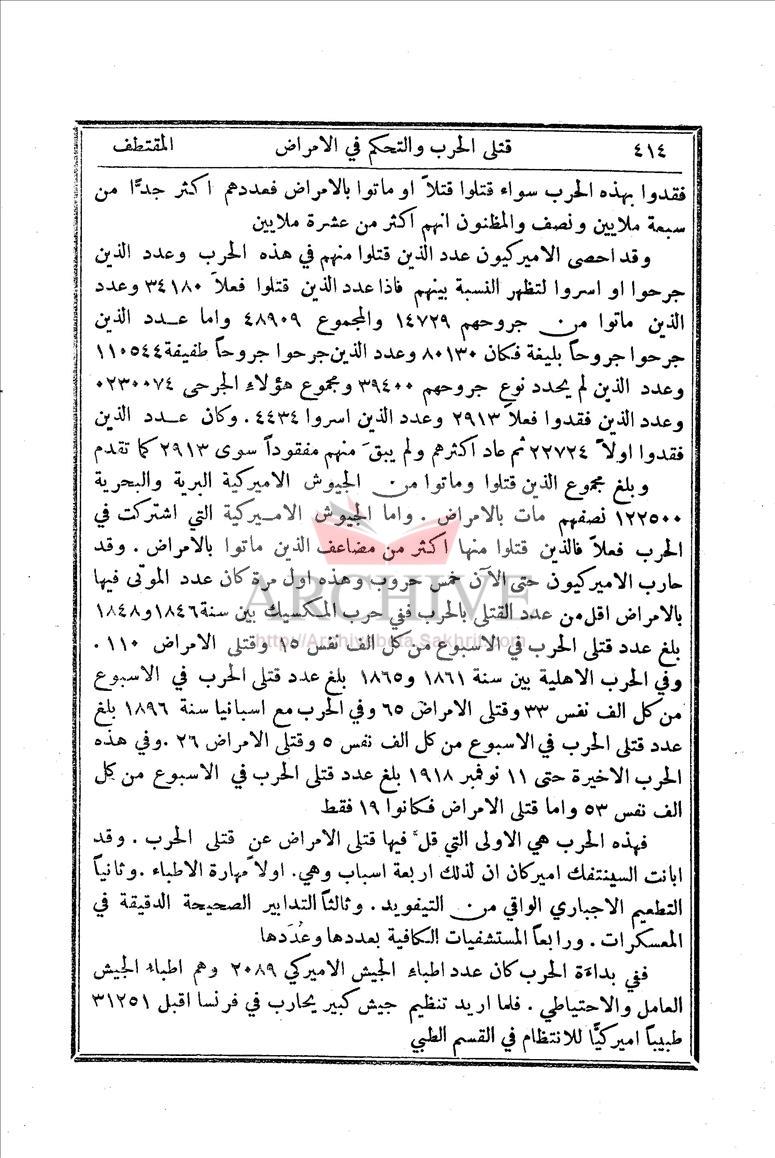 ٤١٤ قتلى الحرب والتحكم في الامراض المقتطف
فقدوا بهذه الحرب سواء قتلوا قتلاً او ماتوا بالامراض فعددهم اكثر جدًّا من
سبعة ملايين ونصف والمظنون انهم اكثر من عشرة ملايين
وقد احصى الاميركيون عدد الذين قتلوا منهم في هذه الحرب وعدد الذين
جرحوا او اسروا لتظهر النسبة بينهم فاذا عدد الذين قتلوا فعلاً ٣٤١٨٠ وعدد
الذين ماتوا من جروحهم ١٤٧٢٩ والمجموع ٤٨٩٠٩ واما عدد الذين
جرحوا جروحاً بليغة فكان ٨٠١٣٠ وعدد الذين جرحوا جروحاً طفيفة ١١٠٥٤٤
وعدد الذين لم يحدد نوع جروحهم ٣٩٤٠٠ ومجموع هؤلاء الجرحى ٠٢٣٠٠٧٤
وعدد الذين فقدوا فعلاً ٢٩١٣ وعدد الذين اسروا ٤٤٣٤ . وكان عدد الذين
فقدوا اولاً ٢٢٧٢٤ ثم عاد اكثرهم ولم يبقَ منهم مفقوداً سوى ٢٩١٣ كما تقدم
وبلغ مجموع الذين قتلوا وماتوا من الجيوش الاميركية البرية والبحرية
١٢٢٥٠٠ نصفهم مات بالامراض . واما الجيوش الاميركية التي اشتركت في
الحرب فعلاً فالذين قتلوا منها اكثر من مضاعف الذين ماتوا بالامراض . وقد
حارب الاميركيون حتى الآن خمس حروب وهذه اول مرة كان عدد الموتى فيها
بالامراض اقل من عدد القتلى بالحرب ففي حرب المكسيك بين سنة ١٨٤٦ و١٨٤٨
بلغ عدد قتلى الحرب في الاسبوع من كل الف نفس ١٥ وقتلى الامراض ١١٠ .
وفي الحرب الاهلية بين سنة ١٨٦١ و١٨٦٥ بلغ عدد قتلى الحرب في الاسبوع
من كل الف نفس ٣٣ وقتلى الامراض ٦٥ وفي الحرب مع اسبانيا سنة ١٨٩٦ بلغ
عدد قتلى الحرب في الاسبوع من كل الف نفس ٥ وقتلى الامراض ٢٦ . وفي هذه
الحرب الاخيرة حتى ١١ نوفمبر ١٩١٨ بلغ عدد قتلى الحرب في الاسبوع من كل
الف نفس ٥٣ واما قتلى الامراض فكانوا ١٩ فقط
فهذه الحرب هي الاولى التي قلَّ فيها قتلى الامراض عن قتلى الحرب . وقد
ابانت السينتفك اميركان ان لذلك اربعة اسباب وهي . اولاً مهارة الاطباء . وثانياً
التطعيم الاجباري الواقي من التيفويد . وثالثاً التدابير الصحيحة الدقيقة في
المعسكرات . ورابعاً المستشفيات الكافية بعددها وعُدَدها
ففي بداءة الحرب كان عدد اطباء الجيش الاميركي ٢٠٨٩ وهم اطباء الجيش
العامل والاحتياطي . فلما اريد تنظيم جيش كبير يحارب في فرنسا اقبل ٣١٢٥١
طبيباً اميركيًّا للانتظام في القسم الطبي
ARCHIVE
http://Archivebeta.Sakhrit.com